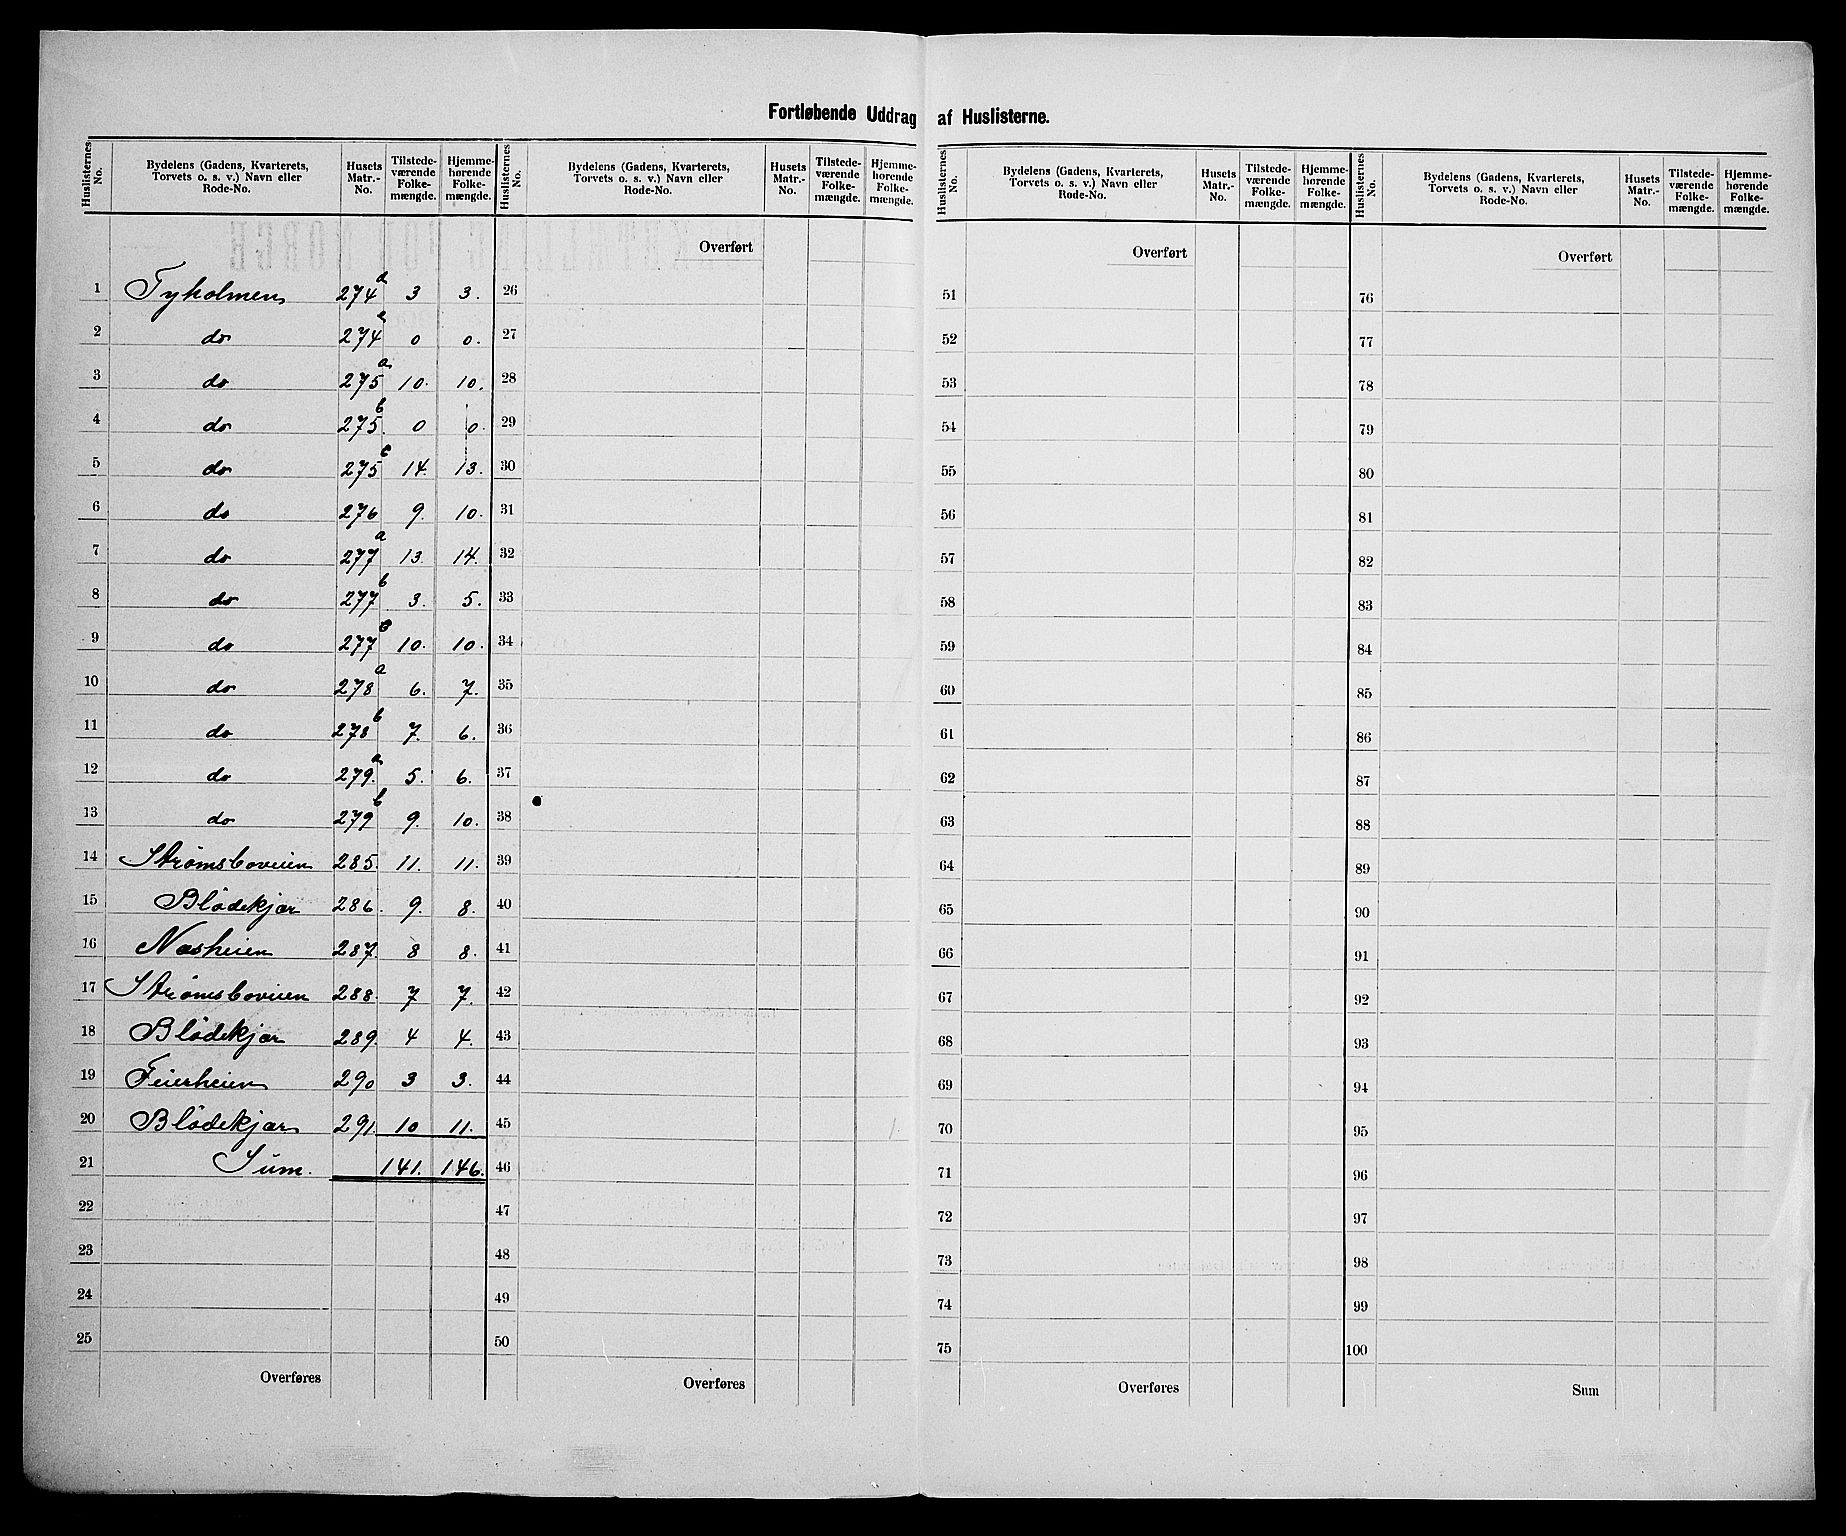 Fortløbende Uddrag af Huslisterne.
Huslisternes No. | Bydelens (Gadens, Kvarterets, Torvets o. s. v.) Navn eller Rode-No. | Husets Matr.-No. | Tilstedeværende Folkemængde. | Hjemmehørende Folkemængde.
Huslisternes No. | Bydelens (Gadens, Kvarterets, Torvets o. s. v.) Navn eller Rode-No. | Husets Matr.-No. | Tilstedeværende Folkemængde. | Hjemmehørende Folkemængde.
Huslisternes No. | Bydelens (Gadens, Kvarterets, Torvets o. s. v.) Navn eller Rode-No. | Husets Matr.-No. | Tilstedeværende Folkemængde. | Hjemmehørende Folkemængde.
Huslisternes No. | Bydelens (Gadens, Kvarterets, Torvets o. s. v.) Navn eller Rode-No. | Husets Matr.-No. | Tilstedeværende Folkemængde. | Hjemmehørende Folkemængde.
Overført Overført Overført
1 Tyholmen 274d 3 3. 26 51 76
2 do 274e 0 0. 27 52 77
3 do 275a 10. 10. 28 53 78
4 do 275b 0 0. 29 54 79
5 do 275c 14. 13. 30 55 80
6 do 276 9. 10. 31 56 81
7 do 277a 13. 14. 32 57 82
8 do 277b 3. 5. 33 58 83
9 do 277c 10. 10. 34 59 84
10 do 278a 6. 7. 35 60 85
11 do 278b 7. 6. 36 61 86
12 do 279a 5. 6. 37 62 87
13 do 279b 9. 10. 38 63 88
14 Strømsboveien 285. 11. 11. 39 64 89
15 Blødekjær 286. 9. 8. 40 65 90
16 Næsheien 287. 8 8. 41 66 91
17 Strømsboveien 288. 7 7. 42 67 92
18 Blødekjær 289. 4 4. 43 68 93
19 Feierheien 290 3 3. 44 69 94
20 Blødekjær 291. 10 11. 45 70 95
21 Sum. 141. 146. 46 71 96
22 47 72 97
23 48 73 98
24 49 74 99
25 50 75 100
Overføres Overføres Overføres Sum